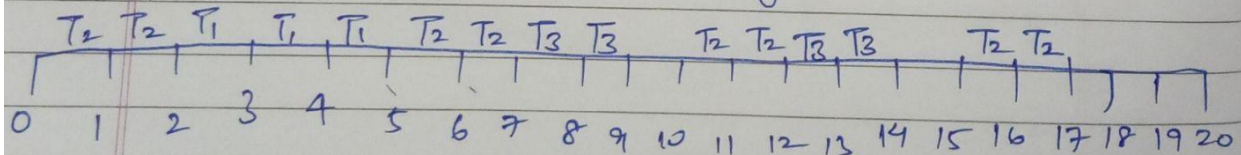 T₂ T₂ T₁ T₁ T₁ T₂ T₂ T₃ T₃ T₂ T₂ T₃ T₃ T₂ T₂
0 1 2 3 4 5 6 7 8 9 10 11 12 13 14 15 16 17 18 19 20